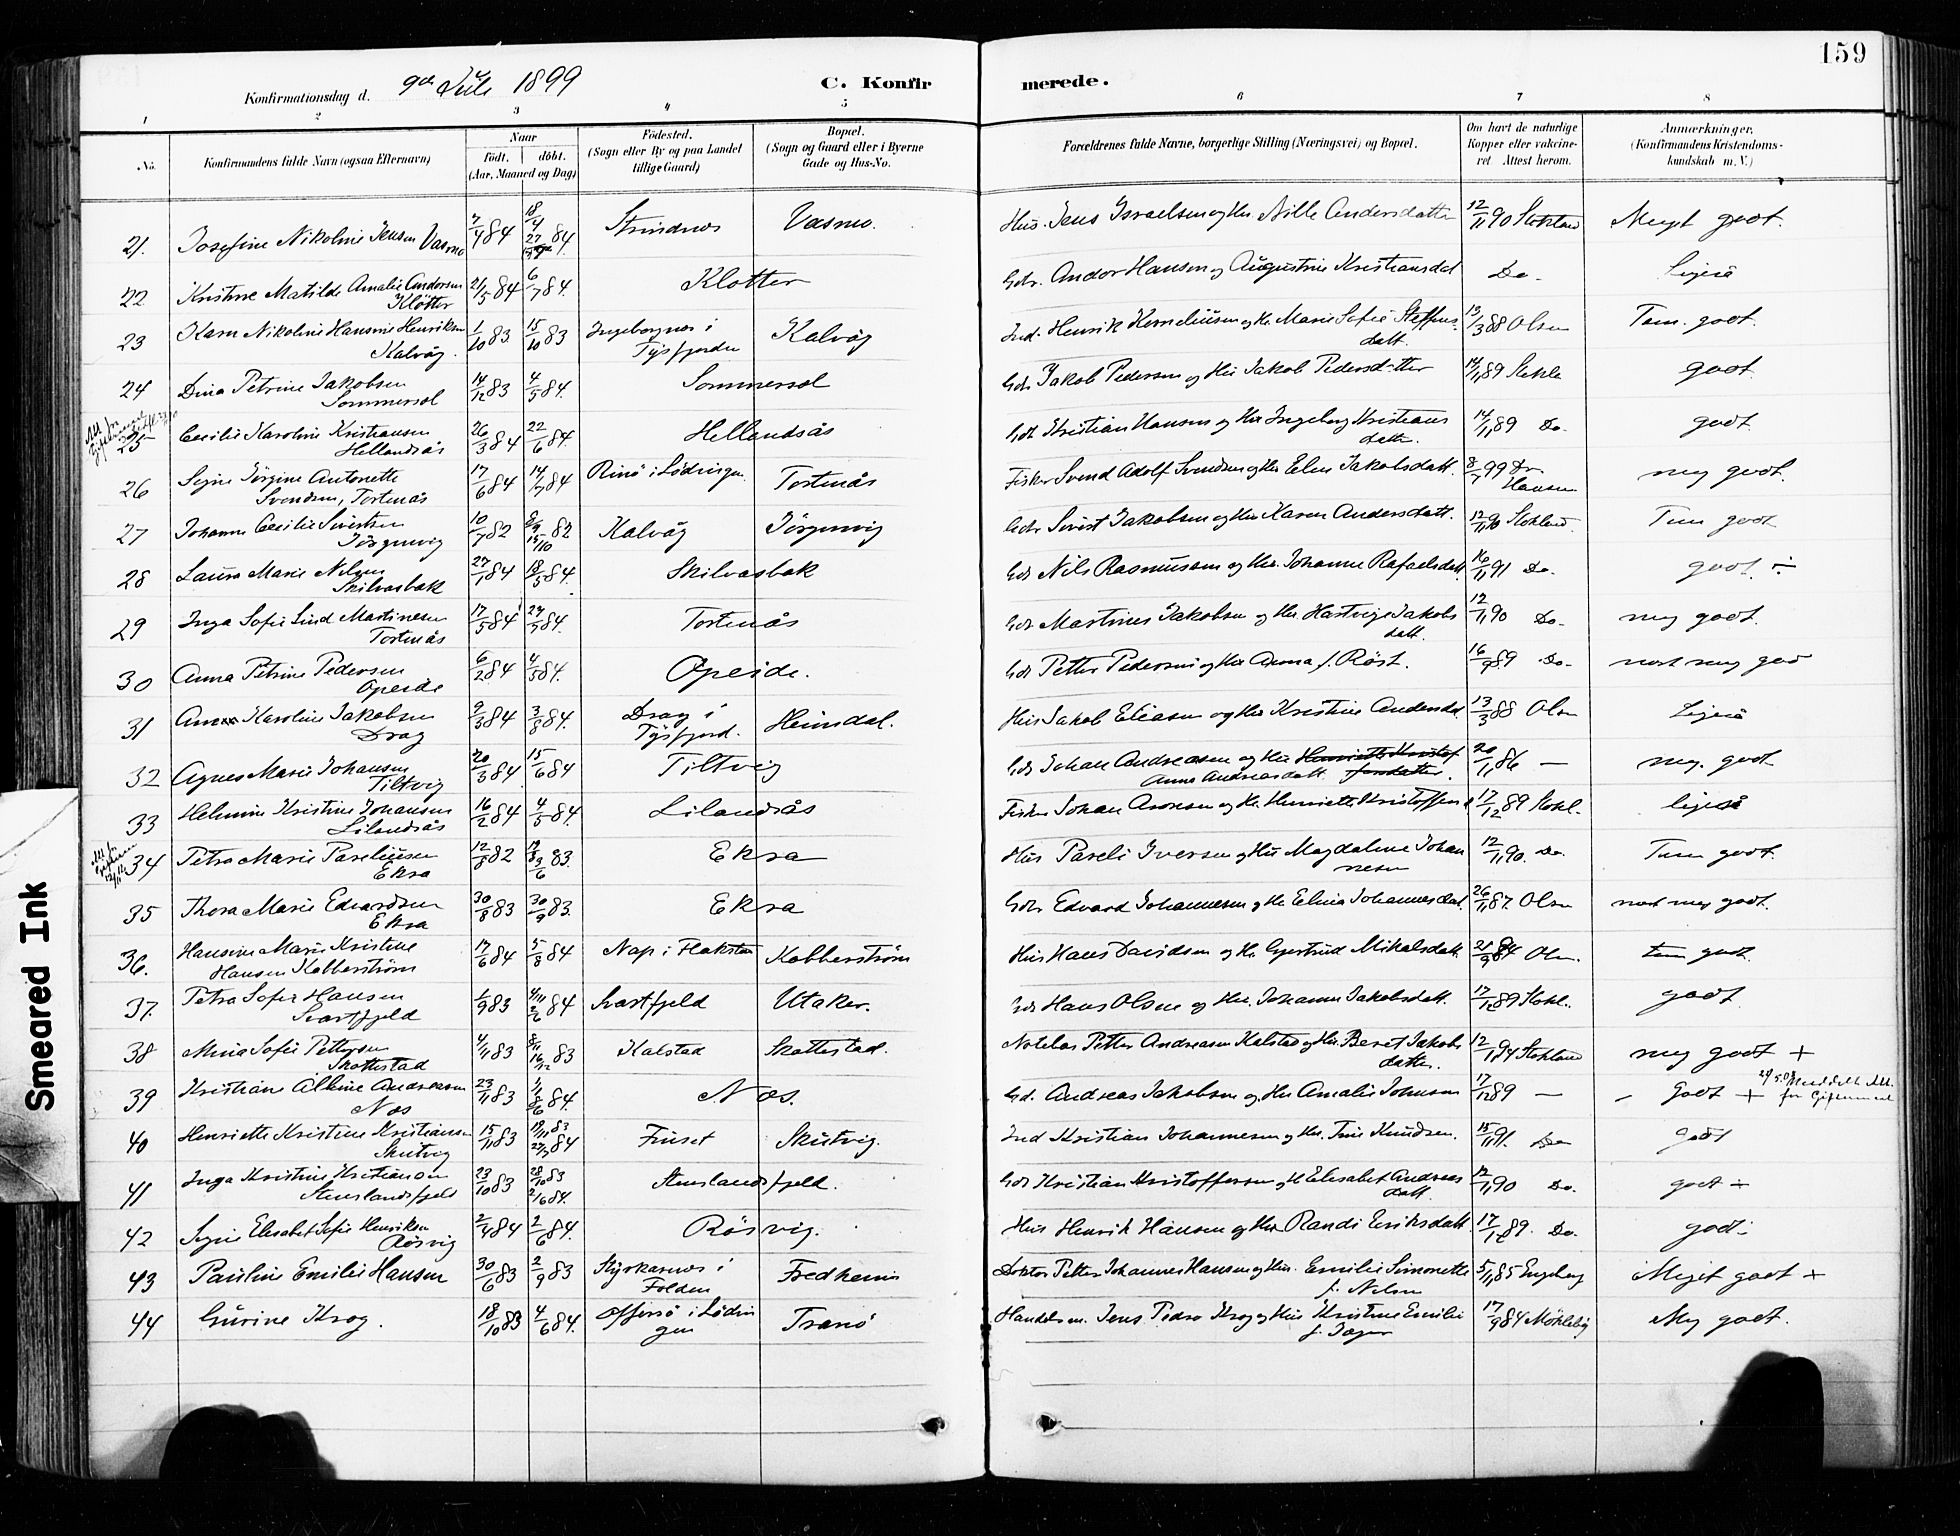 159
Konfirmationsdag d. 9de Juli 1899 C. Konfirmerede.
1 2 3 4 5 6 7 8
No. Konfirmandens fulde Navn (ogsaa Efternavn) Naar födt. döbt. (Aar, Maaned og Dag) Födested. (Sogn eller By og paa Landet tillige Gaard) Bopæl. (Sogn og Gaard eller i Byerne Gade og Hus-No. Forældrenes fulde Navne, borgerlige Stilling (Næringsvei) og Bopæl. Om havt de naturlige Kopper eller vakcineret Attest herom. Anmærkninger. (Konfirmandens Kristendomskundskab m. V.)
21. Josefine Nikoline Jensen Vasmo 7/4 84 18/4 84 Strindnes Vasmo. Hus. Jens Israelsen og Hu. Nille Andersdatter 12/11 90 Stokland Meget godt.
22 Kristine Matilde Amalie Andersen Klötter 21/5 84 6/7 84. Klotter Gdr. Andor Hansen og Augustine Kristiansdat Do. Ligeså
23 Karn Nikoline Hansine Henriksen Kalvåg. 1/10 83 15/10 83 Ingeborgnes i Tysfjorden Kalvåg Ind. Henrik Korneliusen og Hu. Marie Sofie Steffensdatt. 13/3 88 Olsen Tem. godt.
24 Dina Petrine Jakobsen Sommersel 14/12 83 4/5 84. Sommersel Gdr. Jakob Pedersen og Hu Jakob Pedersdatter 14/11 89 Stokla godt.
25 Cecilie Karoline Kristiansen Hellandsås 26/3 84 22/6 84. Hellandsås Gdr. Kristian Hansen og Hu Ingeborg Kristians datter. 14/11 89 Do. godt
26 Signe Jörgine Antonette Svendsen, Tortenås 17/6 84 14/7 84 Rinö i Lödingen Tortenås Fisker Svend Adolf Svendsen og Hu Elen Jakobsdatt. 8/7 99 Dr. Hansen meg godt.
27 Johanne Cecilie Sivertsen Jörgenvig 10/7 82 8/9 82 15/10 Kalvåg Jörgenvig Gdr. Sivert Jakobsen og Hu Karen Andersdatt. 12/11 90 Stokland. Tem godt
28 Laura Marie Nilsen Skilvasbak 27/1 84 18/5 84. Skilvasbak Gdr Nils Rasmussen og Hu. Johanne Rafaelsdatt. 16/11 91 Do. godt. ÷
29 Inga Sofie Lind Martinesen Tortenås 17/5 84 84. Tortenås Gdr Martines Jakobsen og Hu Hartvige Jakobs datt. 12/11 90 Do. meg godt.
30 Anna Petrine Pedersen Opeide 6/2 84 4/5 84. Opeide. Gdr Petter Pedersen og Hu Anna f. Röst. 16/9 89 Do. næst meg god
31 Karoline Jakobsen Drag 9/3 84 3/8 84. Drag i Tysfjord. Heimdal. Hus Jakob Eliasen og Hu Kristine Andersdat 13/3 88 Olsen Ligeså
32 Agnes Marie Johansen Tiltvig 20/3 84 15/6 84 Tiltvig Gdr Johan Andreasen og Hu Henriette Kristoffersdatter. Anne Andreasdatt. 20/11 86 — meg. godt
33 Helmine Kristine Johansen Lilandsås 16/2 84 4/5 84. Lilandsås Fisker Johan Aronsen og Hu. Henriette Kristoffersd 17/12 89 Stokl. ligeså
34 Petra Marie Pareliusen Eksa 12/8 82 83. Eksa Hus Pareli Iversen og Hu Magdalene Johannesen 12/11 90. Do. Tem godt.
35 Thora Marie Edvardsen Eksa 30/8 83 30/9 83. Eksa Gdr Edvard Johannesen og Hu Elina Johannesdat. 26/11 87. Olsen næst meg godt.
36. Hansine Marie Kristine Hansen Kobberström 17/6 84 5/8 84 Nap i Flakstad Kobberström Hus Hans Davidsen og Hu. Gjertrud Mikalsdatt. 84 Olsen. tem godt.
37. Petra Sofie Hansen Svartfjeld 1/9 83 4/11 84 2/6 Svartfjeld Utaker. Gdr Hans Olsen og Hu. Johanna Jakobsdatt. 17/12 89 Stokl. godt
38 Mina Sofie Pettersen Skottestad 4/11 83 8/11 83 16/12 Kalstad Skottestad. Petter Andreasen Kalstad og Hu. Beret Jakobs datter. 12/9 94 Stokland meg godt +
39 Kristiane Albine Andreasen Nes 23/11 83 1/1 84. 8/6 Nes. Gd. Andreas Jakobsen og Hu Amalie Johnsen 17/12 89 — - Godt + 29/5.08 Meddelt Att. for Giftermaal
40 Henriette Kristine Kristiansen Skutvig 15/11 83 19/11 83 27/7 84 Finset Skutvig. Ind Kristian Johannesen og Hu. Trine Knudsen. 15/11 91. Do godt
41 Inga Kristine Kristiansen Stenslandsfjeld 23/10 83 28/10 83 2/6 84. Stenslandsfjeld. Gdr Kristian Kristoffersen og H Elisabet Andreas datt. 12/11 90 Do. godt ÷
42 Signe Elisabet Sofie Henriksen Rösvig 2/4 84 2/6 84. Rösvig. Hus Henrik Hansen og Hu Randi Eriksdatt. 17/12 89. Do. godt-
43 Pauline Emilie Hansen 30/6 83 2/9 83 Styrkesnes i Folden Fredheim Doktor Petter Johannes Hansen og Hu. Emilie Simonette f. Nilsen 5/11 85 Engeberg Meget godt +
44 Gurine Krog. 18/10 83 4/6 84. Offersö i Lödingen Tranö Handelsm. Jens Peder Krog og Hu Kristine Emilie f. Jæger 17/9 84 Möklebg Meg godt.
Smeared Ink